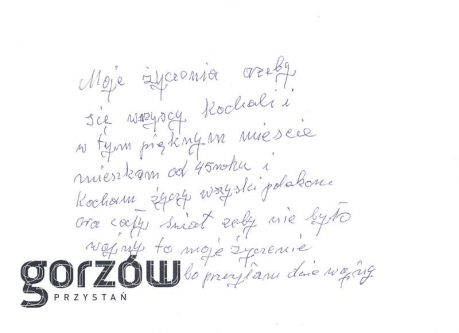 Moje życzenia ażeby
się wszyscy kochali i
w tym pięknym mieście
mieszkam od 45 roku i
Kocham życzy wszyski polakom
oraz cały świat żeby nie było
wojny to moje życzenie
bo przeżyłam dwie wojny
gorzów
PRZYSTAŃ